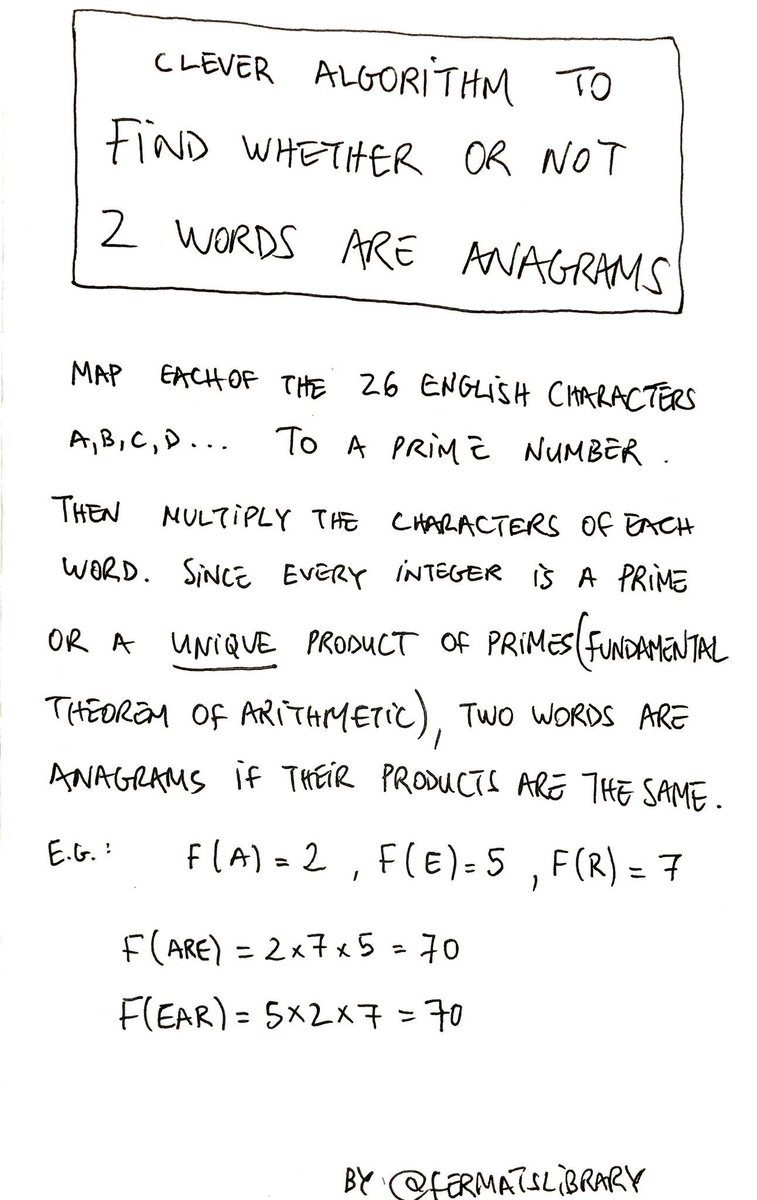 CLEVER ALGORITHM TO
FIND WHETHER OR NOT
2 WORDS ARE ANAGRAMS
MAP EACH OF THE 26 ENGLISH CHARACTERS
A,B,C,D... TO A PRIME NUMBER.
THEN MULTIPLY THE CHARACTERS OF EACH
WORD. SINCE EVERY INTEGER IS A PRIME
OR A UNIQUE PRODUCT OF PRIMES (FUNDAMENTAL
THEOREM OF ARITHMETIC), TWO WORDS ARE
ANAGRAMS IF THEIR PRODUCTS ARE THE SAME.
E.G.: F(A) = 2 , F(E) = 5 , F(R) = 7
F(ARE) = 2 x 7 x 5 = 70
F(EAR) = 5 x 2 x 7 = 70
BY @FERMATSLIBRARY